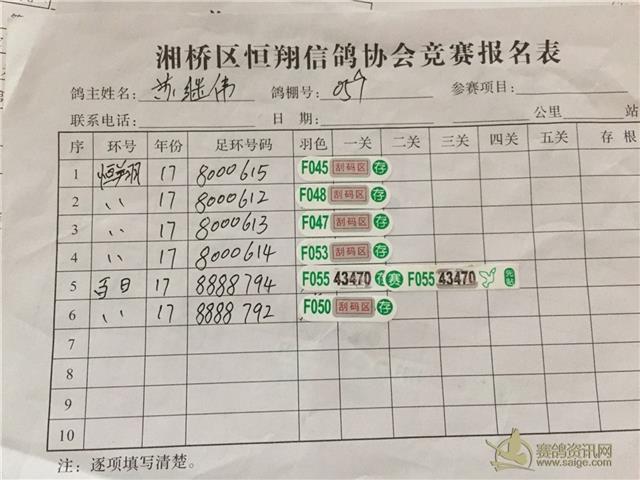 湘桥区恒翔信鸽协会竞赛报名表
鸽主姓名: 苏继伟 鸽棚号: 059 参赛项目:
联系电话: 日期: 公里 站
序 环号 年份 足环号码 羽色 一关 二关 三关 四关 五关 存根
1 恒翔 17 8000615 F045 刮码区 存
2 〃 17 8000612 F048 刮码区 存
3 〃 17 8000613 F047 刮码区 存
4 〃 17 8000614 F053 刮码区 存
5 百日 17 8888794 F055 43470 赛 F055 43470
6 〃 17 8888792 F050 刮码区 存
7
8
9
10
注: 逐项填写清楚。
赛鸽资讯网
www.saige.com